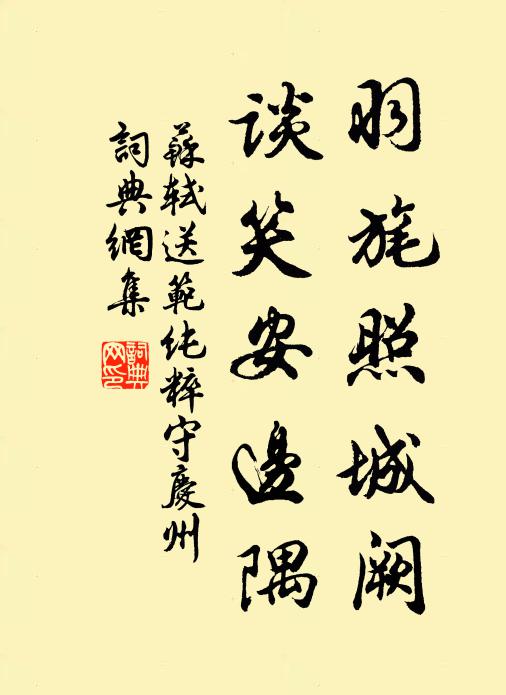 羽旄照城阙
谈笑安邊隅
蘇軾送範純粹守慶州
詞典網集
詞典網印